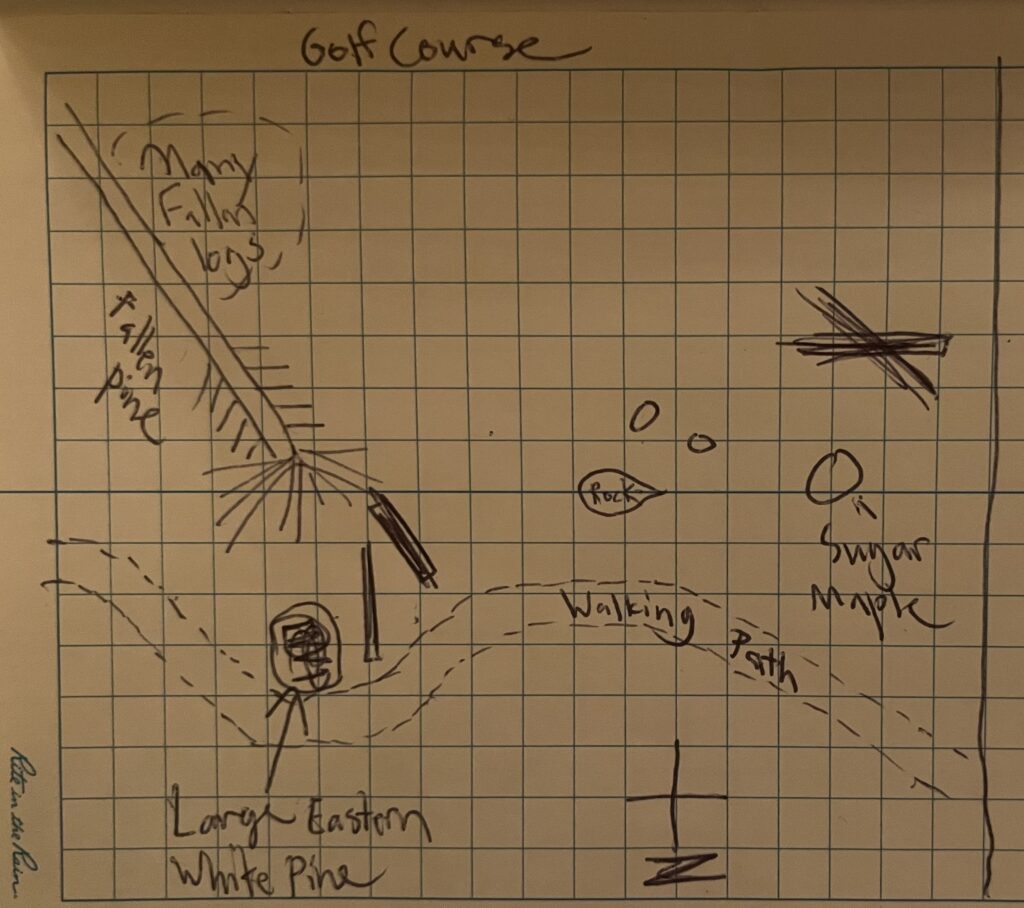 Golf Course
Many
Fallen
logs
Fallen
pine
Rock
Sugar
Maple
Walking
Path
Large Eastern
White Pine
N
Rite in the Rain